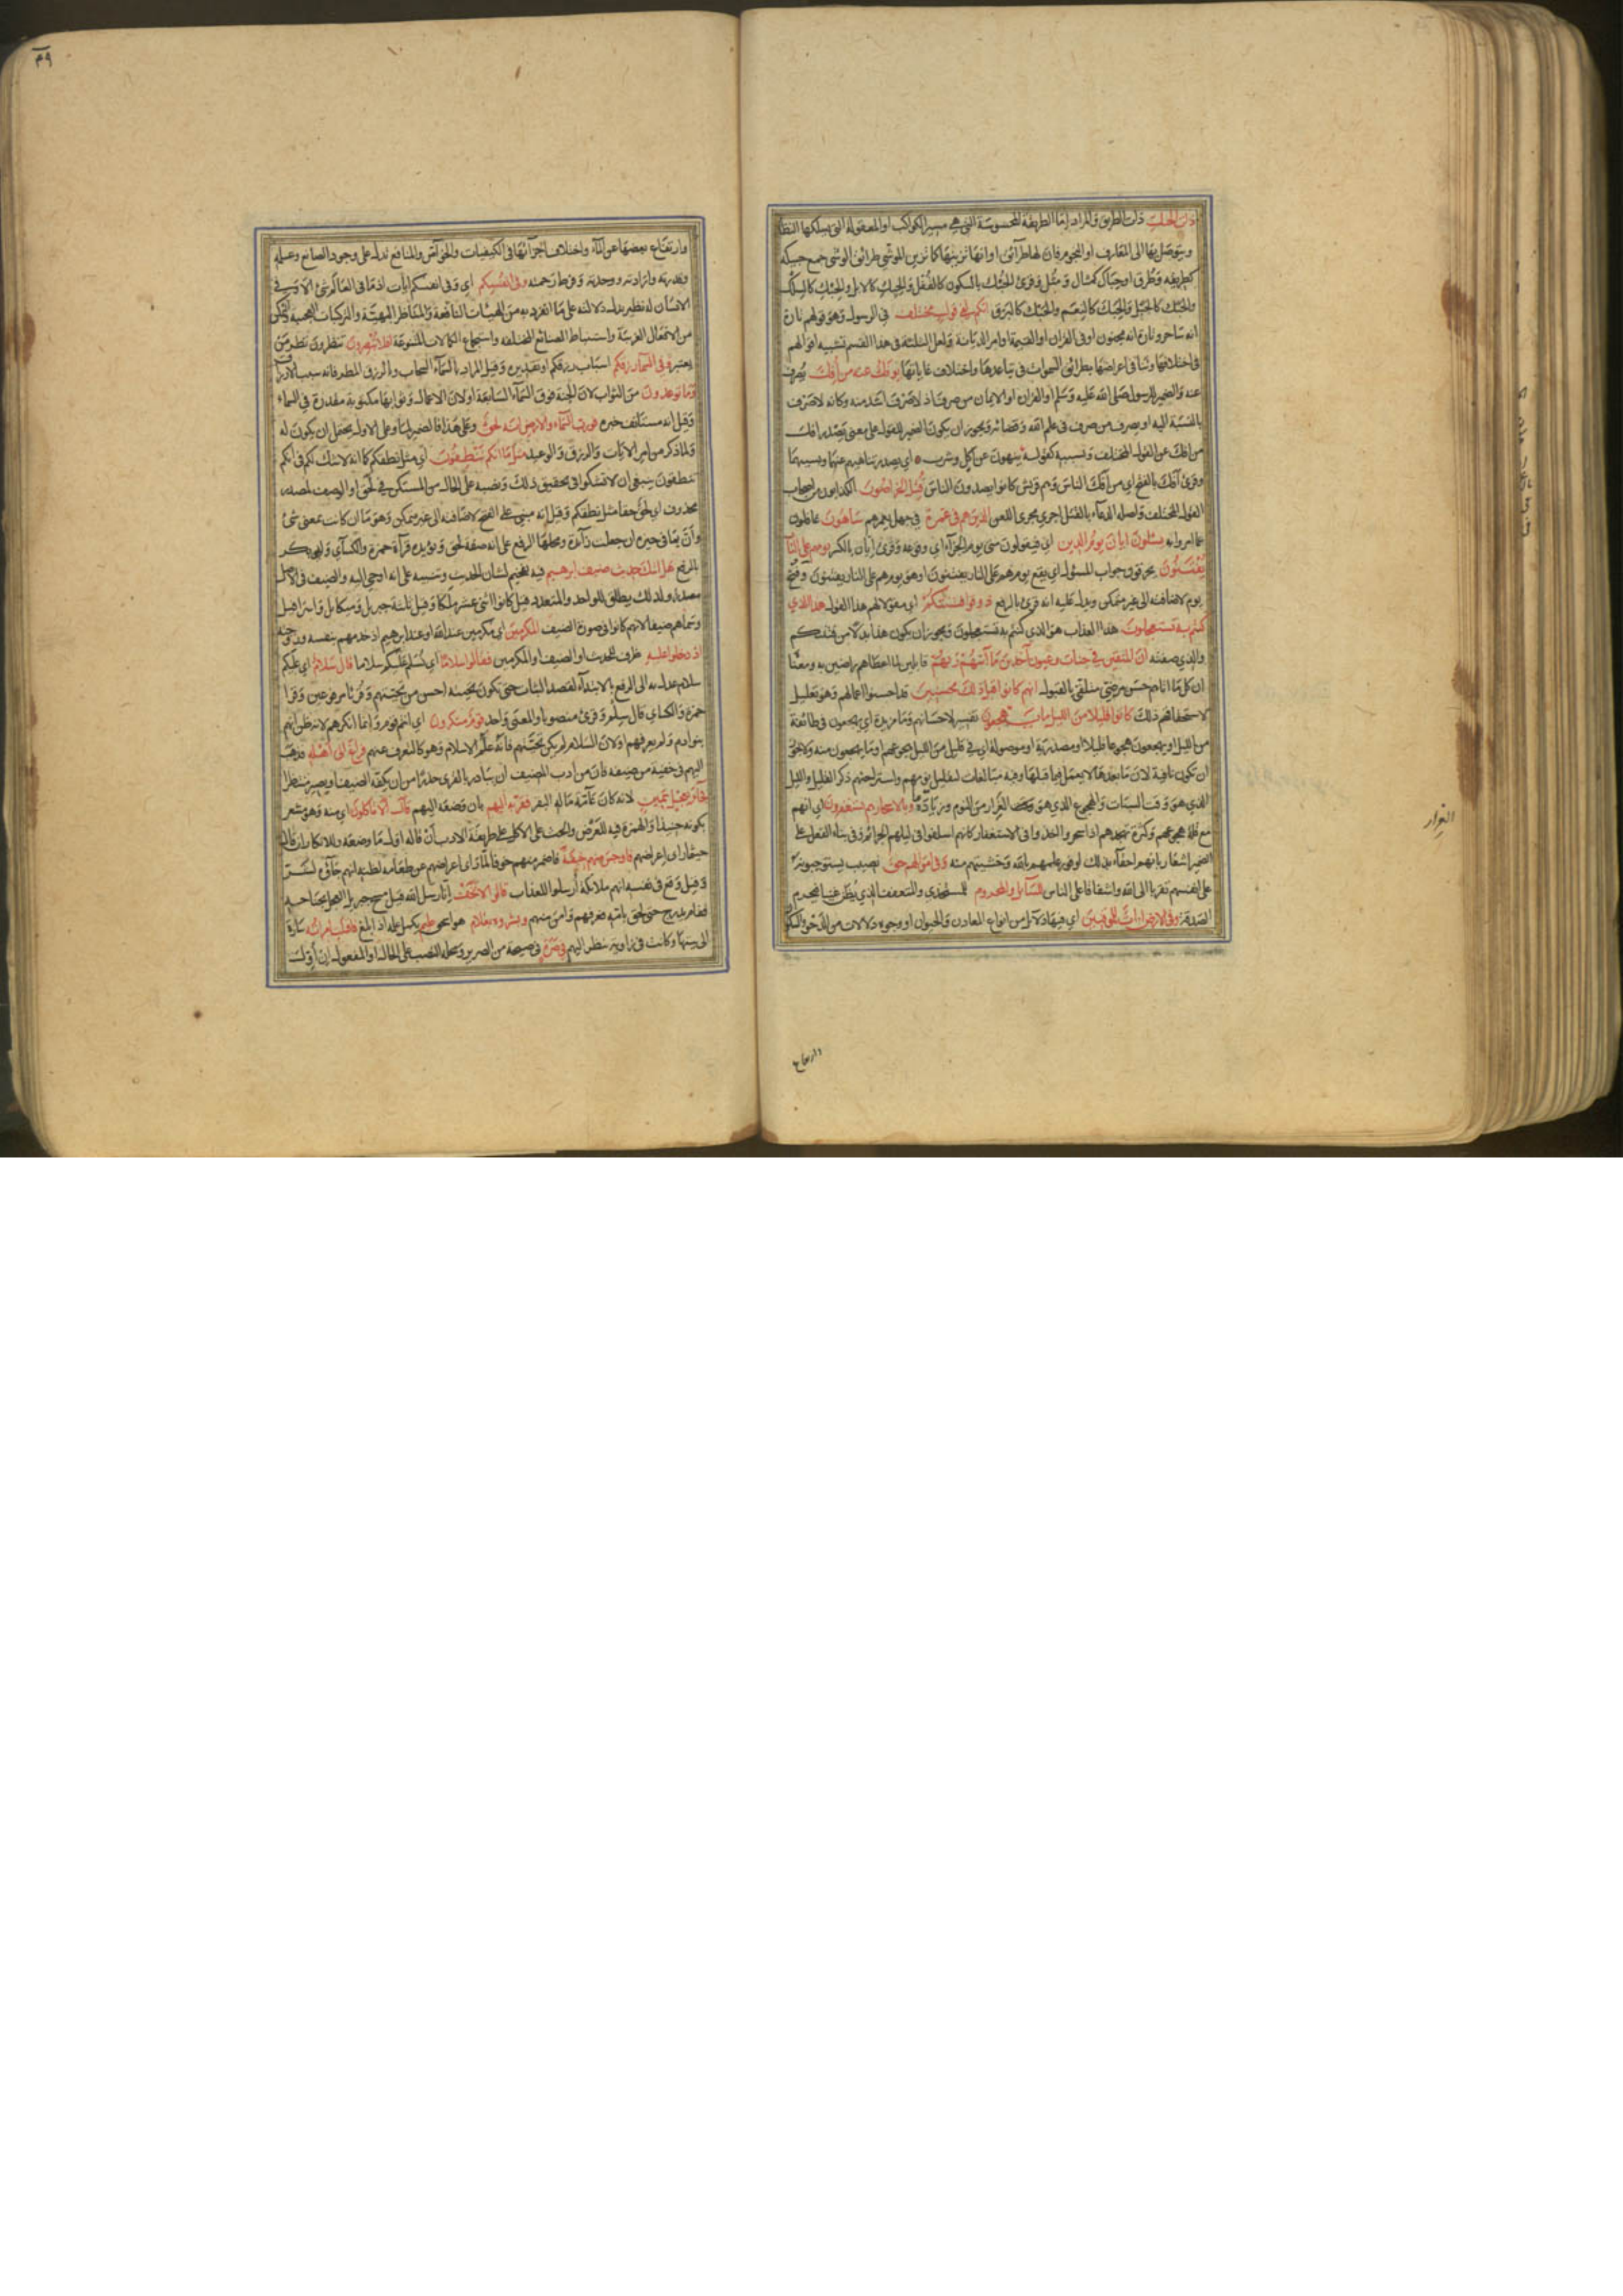 ذات الحبك ذات الطريق والمراد اما الطريقة المحسوسة التي هي مسير الكواكب او المعقولة التي يسلكها النظار
ويتوصل بها الى المعارف او النجوم فان لها طرائق او انها تزينها كما تزين الموشي طرائق الوشي جمع حبيكة
كطريقه وطرق او حباك كمثال ومثل وقرئ الحبك بالسكون كالقفل والحبك كالابل والحبك كالسلك
والحبك كالجبل والحبك كالنعم والحبك كالبرق انكم لفي قول مختلف في الرسول وهو قولهم تارة
انه شاعر وتارة انه ساحر وتارة انه مجنون او في القران او القيمة او امر الديانة ولعل النكتة في هذا القسم تشبيه اقوالهم
في اختلافها وتنافي اغراضها بطرائق السموات في تباعدها واختلاف غاياتها يؤفك عنه من افك يصرف
عنه والضمير للرسول صلى الله عليه وسلم او القران او الايمان من صرف اذ لا صرف اشد منه وكانه لا صرف
بالنسبة اليه او يصرف من صرف في علم الله وقضائه ويجوز ان يكون الضمير للقول على معنى يصدر افك
من افك عن القول المختلف وبسببه كقوله ينهون عن اكل وشرب اي يصدر تناهيهم عنهما وبسببهما
وقرئ افك بالفتح اي من افك الناس وهم قريش كانوا يصدون الناس قتل الخراصون الكذابون من اصحاب
القول المختلف واصله الدعاء بالقتل اجري مجرى اللعن الذين هم في غمرة في جهل يغمرهم ساهون غافلون
عما امروا به يسئلون ايان يوم الدين اي فيقولون متى يوم الجزاء اي وقوعه وقرئ ايان بالكسر يوم هم على النار
يفتنون يحرقون جواب للسؤال اي يقع يوم هم على النار يفتنون او هو يوم هم على النار يفتنون وفتح
يوم لاضافته الى غير متمكن ويدل عليه انه قرئ بالرفع ذوقوا فتنتكم اي مقولا لهم هذا القول هذا الذي
كنتم به تستعجلون هذا العذاب هو الذي كنتم به تستعجلون ويجوز ان يكون هذا بدلا من فتنتكم
والذي صفته ان المتقين في جنات وعيون آخذين ما آتيهم ربهم قابلين لما اعطاهم راضين به ومعناه
ان كل ما اتاهم حسن مرضي متلقى بالقبول انهم كانوا قبل ذلك محسنين قد احسنوا اعمالهم وهو تعليل
لاستحقاقهم ذلك كانوا قليلا من الليل ما يهجعون تفسير لاحسانهم وما مزيدة اي يهجعون في طائفة
من الليل او يهجعون هجوعا قليلا او مصدرية او موصولة اي في قليل من الليل هجوعهم او ما يهجعون منه ولا يجوز
ان تكون نافية لان ما بعدها لا يعمل فيما قبلها وفيه مبالغات لتقليل نومهم واستراحتهم ذكر القليل والليل
الذي هو وقت السبات والهجوع الذي هو الغرار من النوم وزيادة ما وبالاسحار هم يستغفرون اي انهم
مع قلة هجوعهم وكثرة تهجدهم اذا اسحروا اخذوا في الاستغفار كانهم اسلفوا في ليلهم الجرائم وفي بناء الفعل على
الضمير اشعار بانهم احقاء بذلك لوفور علمهم بالله وخشيتهم منه وفي اموالهم حق نصيب يستوجبونه
على انفسهم تقربا الى الله واشفاقا على الناس للسائل والمحروم للمستجدي والمتعفف الذي يظن غنيا فيحرم
الصدقة وفي الارض ايات للموقنين اي فيها دلائل من انواع المعادن والحيوان او وجوه دلالات من الدحو والسكون
وارتفاع
الغرار
٣٩
وارتفاع بعضها عن الماء واختلاف اجزائها في الكيفيات والخواص والمنافع تدل على وجود الصانع وعلمه
وقدرته وارادته ووحدته وفرط رحمته وفي انفسكم اي وفي انفسكم ايات اذ ما في العالم شئ الا وفي
الانسان له نظير يدل دلالته على ما انفرد به من الهيئات النافعة والمناظر البهية والتركيبات العجيبة والتمكن
من الافعال الغريبة واستنباط الصنائع المختلفة واستجماع الكمالات المتنوعة افلا تبصرون تنظرون نظر من
يعتبر وفي السماء رزقكم اسباب رزقكم او تقديره وقيل المراد بالسماء السحاب وبالرزق المطر فانه سبب الاقوات
وما توعدون من الثواب لان الجنة فوق السماء السابعة او لان الاعمال وثوابها مكتوبة مقدرة في السماء
وقيل انه مستانف خبره فورب السماء والارض انه لحق وعلى هذا فالضمير لما وعلى الاول يحتمل ان يكون له
ولما ذكر من امر الايات والرزق والوعيد مثل ما انكم تنطقون اي مثل نطقكم كما انه لا شك لكم في انكم
تنطقون ينبغي ان لا تشكوا في تحقيق ذلك ونصبه على الحال من المستكن في لحق او الوصف لمصدر
محذوف اي لحق حقا مثل نطقكم وقيل انه مبني على الفتح لاضافته الى غير متمكن وهو ما ان كانت بمعنى شئ
وان بما في حيزه ان جعلت زائدة ومحلها الرفع على انه صفة لحق ويؤيده قراءة حمزة والكسائي وابي بكر
بالرفع هل اتيك حديث ضيف ابرهيم فيه تفخيم لشان الحديث وتنبيه على انه اوحي اليه والضيف في الاصل
مصدر ولذلك يطلق للواحد والمتعدد قيل كانوا اثني عشر ملكا وقيل ثلثة جبريل وميكايل واسرافيل
وسماهم ضيفا لانهم كانوا في صورة الضيف المكرمين اي مكرمين عند الله او عند ابرهيم اذ خدمهم بنفسه وزوجته
اذ دخلوا عليه ظرف للحديث او الضيف او المكرمين فقالوا سلاما اي نسلم عليكم سلاما قال سلام اي عليكم
سلام عدل به الى الرفع بالابتداء لقصد الثبات حتى تكون تحيته احسن من تحيتهم وقرئا مرفوعين وقرا
حمزة والكسائي قال سلم وقرئ منصوبا والمعنى واحد قوم منكرون اي انتم قوم وانما انكرهم لانه ظن انهم
بنو ادم ولم يعرفهم او لان السلام لم يكن تحيتهم فانه علم الاسلام وهو كالتعرف عنهم فراغ الى اهله فذهب
اليهم في خفية من ضيفه فان من ادب المضيف ان يبادر بالقرى حذرا من ان يكفه الضيف او يصير منتظرا
فجاء بعجل سمين لانه كان عامة ماله البقر فقربه اليهم بان وضعه اليهم قال الا تاكلون اي منه وهو مشعر
بكونه حنيذا والهمزة فيه للعرض والحث على الاكل على طريقة الادب ان قاله اول ما وضعه وللانكار ان قاله
حيثما راى اعراضهم فاوجس منهم خيفة فاضمر منهم خوفا لما راى اعراضهم عن طعامه لظنه انهم جاؤه لشر
وقيل وقع في نفسه انهم ملائكة ارسلوا للعذاب قالوا لا تخف انا رسل الله قيل مسح جبريل العجل بجناحيه
فقام يدرج حتى لحق بامه فعرفهم وامن منهم وبشروه بغلام هو اسحق عليم يكمل علمه اذا بلغ فاقبلت امراته سارة
الى بيتها وكانت في زاوية تنظر اليهم في صرة في صيحة من الصرير ومحله النصب على الحال او المفعول ان اولت